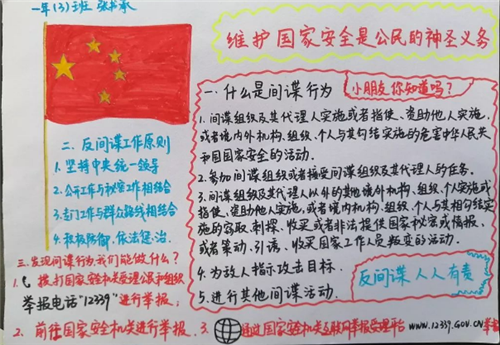 一年(3)班
维护国家安全是公民的神圣义务
一.什么是间谍行为
小朋友你知道吗?
1.间谍组织及其代理人实施或者指使、资助他人实施,
或者境内外机构、组织、个人与其勾结实施的危害中华人民共
和国国家安全的活动.
2.参加间谍组织或者接受间谍组织及其代理人的任务.
3.间谍组织及其代理人以外的其他境外机构、组织、个人实施或
指使、资助他人实施,或者境内机构、组织、个人与其相勾结实
施的窃取、刺探、收买或者非法提供国家秘密或情报,
或者策动、引诱、收买国家工作人员叛变的活动.
4.为敌人指示攻击目标.
5.进行其他间谍活动.
反间谍 人人有责
二.反间谍工作原则
1.坚持中央统一领导
2.公开工作与秘密工作相结合
3.专门工作与群众路线相结合
4.积极防御、依法惩治.
三.发现间谍行为我们能做什么?
1.拨打国家安全机关受理公民和组织
举报电话"12339"进行举报.
2.前往国家安全机关进行举报.
3.通过国家安全机关互联网举报受理平台 WWW.12339.GOV.CN举报